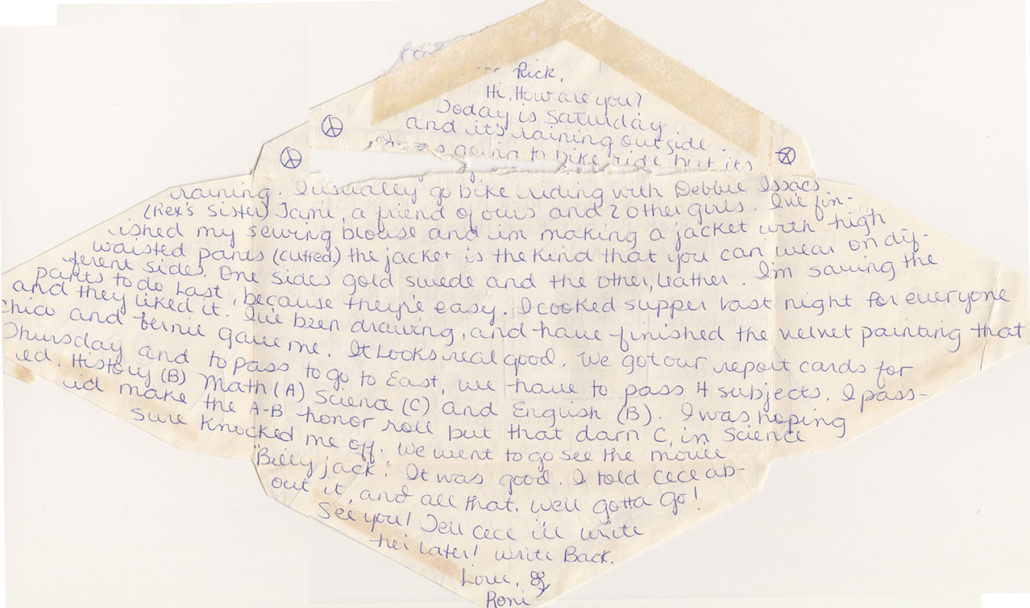 Rick,
Hi. How are you?
Today is saturday
and it's raining outside.
was going to bike ride but its
raining. I usually go bike riding with Debbie Issacs
(Rex's Sister) Jami, a friend of ours and 2 other girls. I've fin-
ished my sewing blouse and im making a jacket with high
waisted pants (cuffed) the jacket is the kind that you can wear on dif-
ferent sides. One sides gold swede and the other, leather. I'm saving the
pants to do last, because they're easy. I cooked supper last night for everyone
and they liked it. I've been drawing, and have finished the velvet painting that
chico and bernie gave me. It looks real good. We got our report cards for
Thursday and to pass to go to East, we have to pass 4 subjects. I pass-
ed. History (B) Math (A) Science (C) and English (B). I was hoping
id make the A-B honor roll but that darn C, in Science
sure knocked me off. We went to go see the movie
"Billy jack". It was good. I told cece ab-
out it, and all that. Well gotta go!
See you! Tell cece i'll write
her later! Write Back.
Love,
Roni